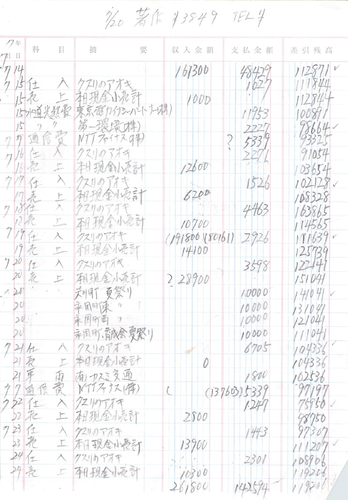 7/20 著作 ¥3549 TEL 4
7年 月日 科目 摘要 収入金額 支払金額 差引残高
7 14 161300 48429 112871
7 15 仕入 クスリのアオキ 1027 111844
15 売上 相現金小売計 1000 112844
15 水道光熱費 11953 100891
15 〃 〃 第一環境(株) 2227 98664
通信費 NTTファイナンス(株) ? 5339 93325
7 16 仕入 クスリのアオキ 2271 91054
16 売上 相現金小売計 12600 103654
7 17 仕入 クスリのアオキ 1526 102128
17 売上 相現金小売計 6200 108328
7 18 仕入 クスリのアオキ 4463 103865
18 売上 相現金小売計 10700 114565
7 19 仕入 クスリのアオキ 2926
19 売上 相現金小売計 14100
7 20 仕入 クスリのアオキ 3598
20 売上 相現金小売計 ? 28900 151041
夏祭り 10000 141041
20 10000 131041
20 10000 121041
20 夏祭り 10000 111041
7 21 仕入 クスリのアオキ 6705 104336
21 売上 相現金小売計 0 104336
21 (有) 交通 1800 102536
7 通信費 NTTファイナンス(株) 5339 97197
7 22 仕入 クスリのアオキ 1247
22 売上 相現金小売計 2800 98750
7 23 仕入 クスリのアオキ 1443 97307
23 売上 相現金小売計 13900 111207
7 24 仕入 クスリのアオキ 2301 108906
24 売上 相現金小売計 10300 119206
261800 142594 119206